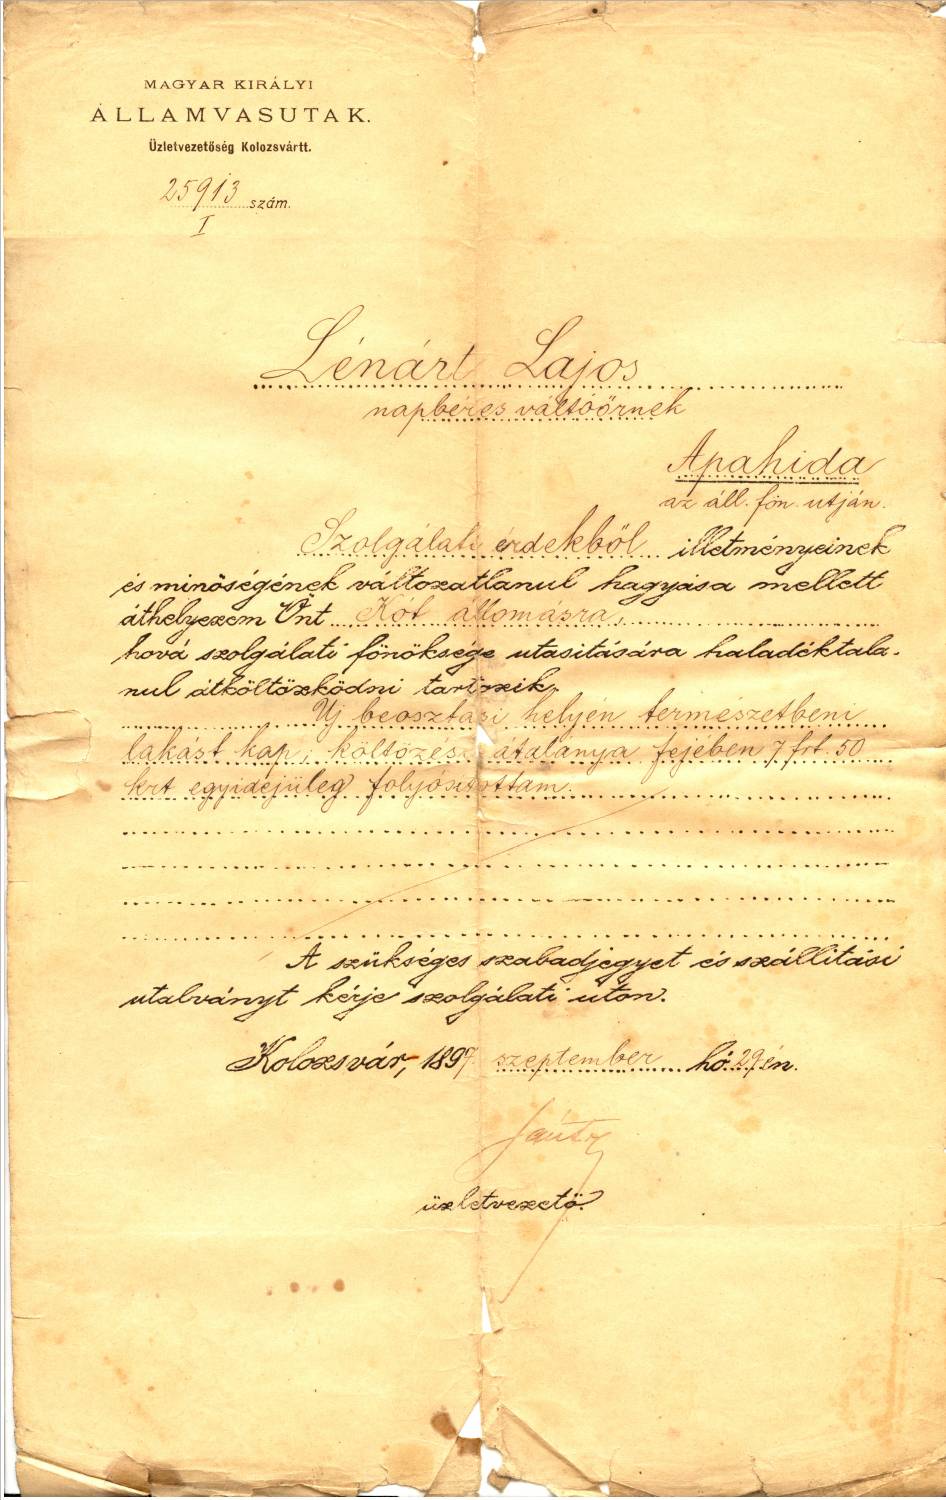 MAGYAR KIRÁLYI
ÁLLAMVASUTAK.
Üzletvezetőség Kolozsvártt.
25913 szám.
I
Lénárt Lajos
napbéres váltóőrnek
Apahida
az áll. fön. utján.
Szolgálati érdekből illetményeinek
és minőségének változatlanul hagyása mellett
áthelyezem Önt Kot állomásra,
hová szolgálati főnöksége utasitására haladéktala-
nul átköltözködni tartozik.
Uj beosztási helyén természetbeni
lakást kap; költözési átalánya fejében 7 frt. 50
krt egyidejüleg folyósitottam.
A szükséges szabadjegyet és szállitási
utalványt kérje szolgálati úton.
Kolozsvár, 1897 szeptember hó 29 én.
üzletvezető.